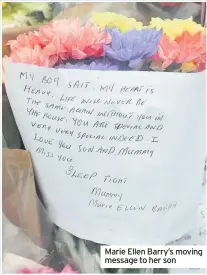 MY BOY SAIT. MY HEART IS
HEAVY. LIFE WILL NEVER BE
THE SAME AGAIN WITHOUT YOU IN
THE HOUSE. YOU ARE SPECIAL AND
VERY VERY SPECIAL INDEED I
LOVE YOU SON AND MUMMY
MISS YOU
SLEEP TIGHT
MUMMY
MARIE ELLEN BARRY
Marie Ellen Barry's moving
message to her son